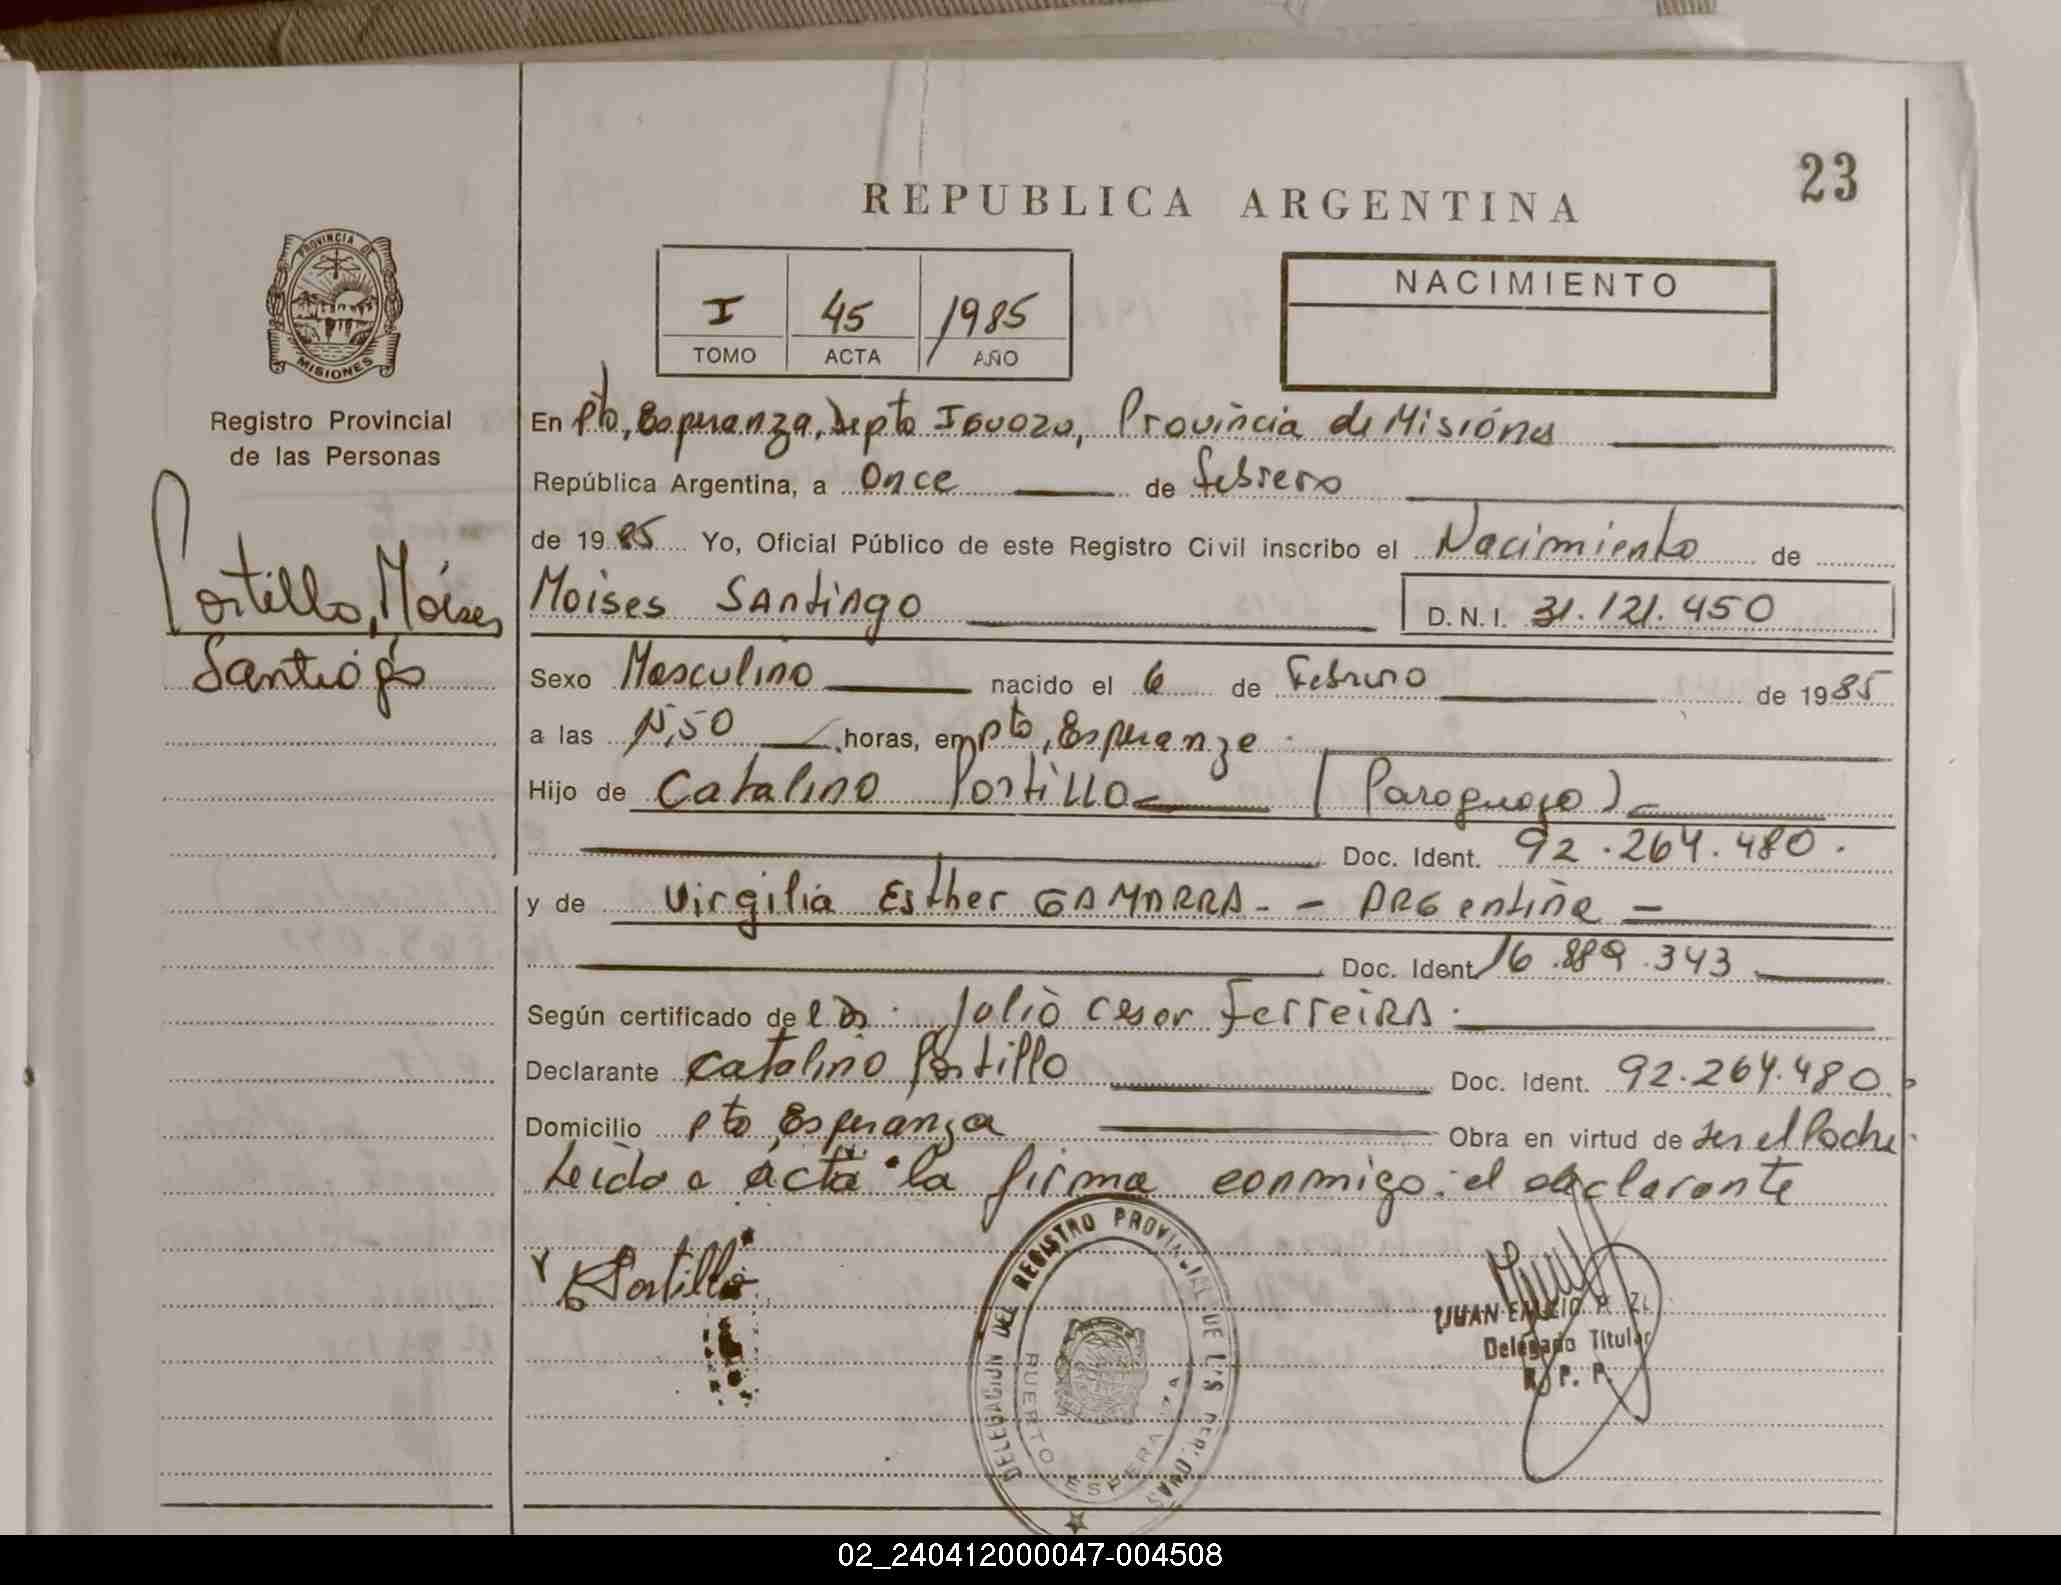 23
REPUBLICA ARGENTINA
PROVINCIA DE
MISIONES
I 45 1985
TOMO ACTA AÑO
NACIMIENTO
Registro Provincial
de las Personas
Portillo, Móises
Santiago
En Pto, Esperanza, Depto Iguazu, Provincia de Misiónes
República Argentina, a Once de febrero
de 1985 Yo, Oficial Público de este Registro Civil inscribo el Nacimiento de
Moises Santiago D.N.I. 31.121.450
Sexo Masculino nacido el 6 de Febrero de 1985
a las 15,50 horas, en Pto, Esperanza
Hijo de Catalino Portillo (Paraguayo)
Doc. Ident. 92.264.480.
y de Virgilia Esther GAMARRA - - ARGentina -
Doc. Ident. 16.889.343
Según certificado de Julio Cesar Ferreira
Declarante Catalino Portillo Doc. Ident. 92.264.480
Domicilio Pto, Esperanza Obra en virtud de ser el Padre
Leido a acta la firma conmigo: el declarante
Portillo
DELEGACION DEL REGISTRO PROVINCIAL DE LAS PERSONAS
PUERTO ESPERANZA
JUAN EMILIO
Delegado Titular
R. P. P.
02_240412000047-004508